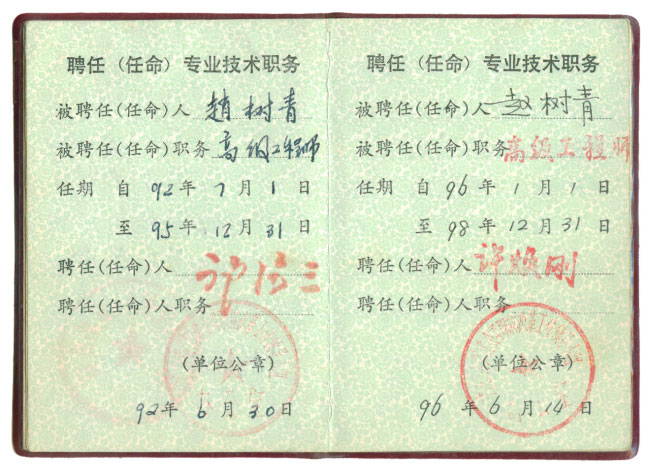 聘任（任命）专业技术职务
被聘任(任命)人 趙树青
被聘任(任命)职务 高级工程师
任期 自 92年 7月 1日
至 95年 12月 31日
聘任(任命)人
聘任(任命)人职务
(单位公章)
92年 6月 30日
聘任（任命）专业技术职务
被聘任(任命)人 赵树青
被聘任(任命)职务 高级工程师
任期 自 96年 1月 1日
至 98年 12月 31日
聘任(任命)人 许焕刚
聘任(任命)人职务
(单位公章)
96年 6月 14日